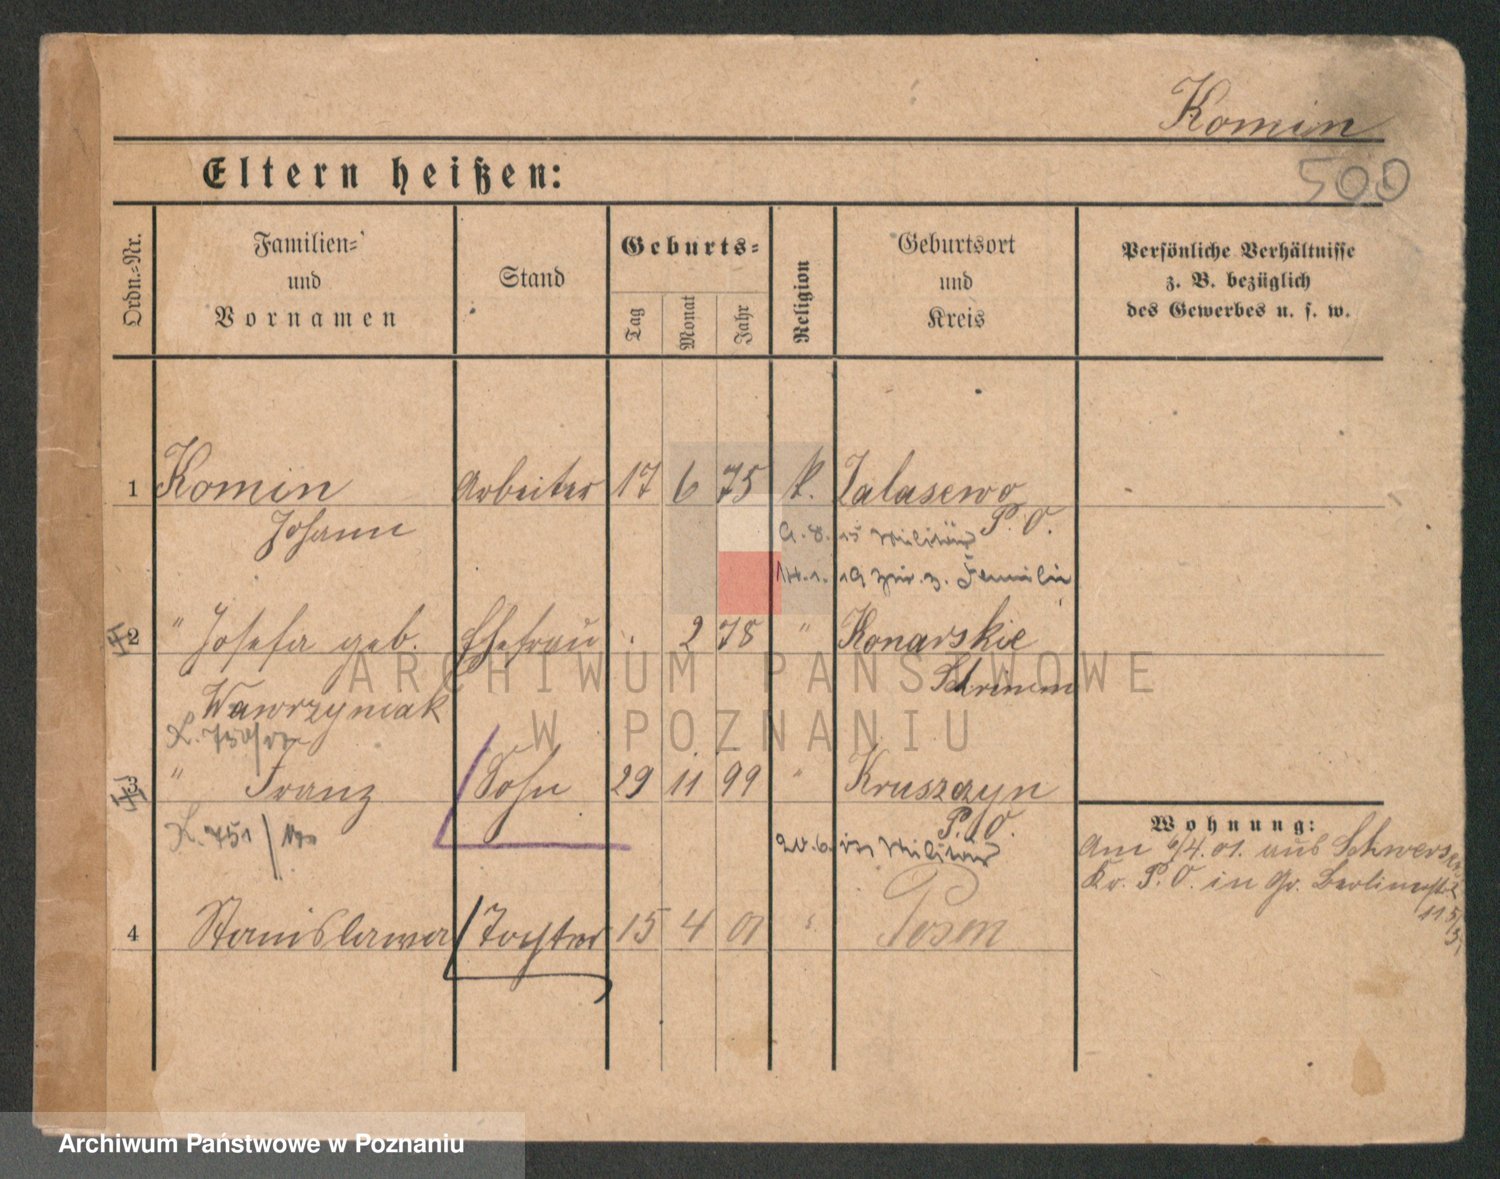 Komin
500
Eltern heißen:
Ordn.=Nr.
Familien=
und
Vornamen
Stand
Geburts=
Tag
Monat
Jahr
Religion
Geburtsort
und
Kreis
Persönliche Verhältnisse
z. B. bezüglich
des Gewerbes u. s. w.
1 Komin Arbeiter 17 6 75 k. Zalasewo
Johann P. O.
9. 8. 15 Militär
14. 1. 19 zur. z. Familie
2 " Josefa geb. Ehefrau . 2 78 " Konarskie
Wawrzyniak Schrimm
3 " Franz Sohn 29 11 99 " Kruszczyn
P. O.
20. 6. Militär
4 Stanislawa Tochter 15 4 01 Posen
Wohnung:
Am 6/4. 01. aus Schwersenz
Kr. P. O. in Gr. Berlinerstr.
ARCHIWUM PAŃSTWOWE
W POZNANIU
Archiwum Państwowe w Poznaniu